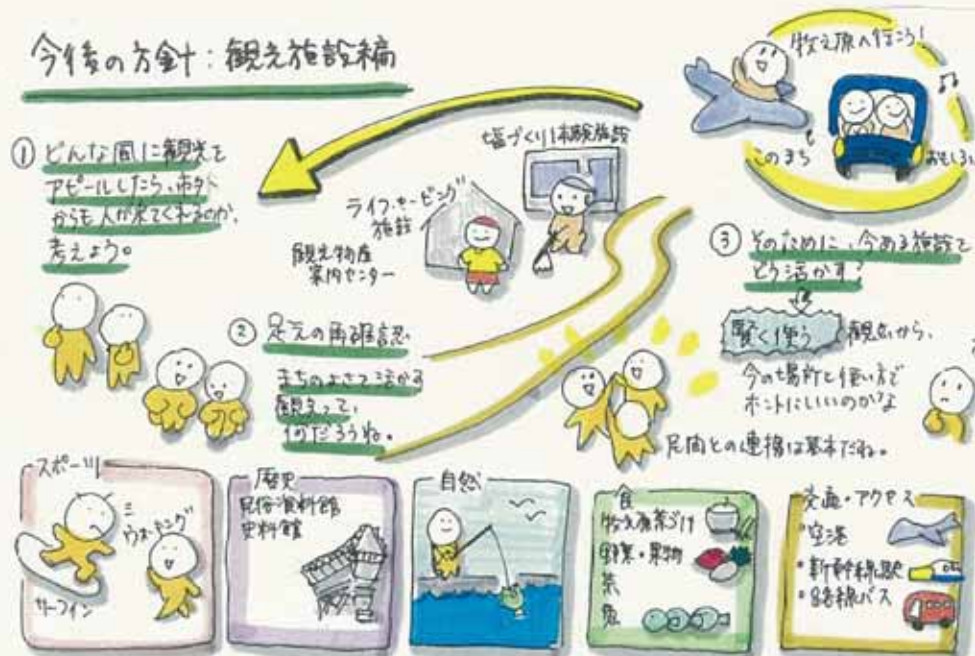 今後の方針：観光施設編
牧之原へ行こう！
このまち
おもしろい
① どんな風に観光を
アピールしたら、ホカ
からも人が来てくれるのか、
考えよう。
塩づくり体験施設
ライフセービング
施設
観光物産
案内センター
② 足元の再確認。
まちのよさって活かす
観光って、
何だろうね。
③ そのために、今ある施設を
どう活かす？
賢く使う 観点から、
今の場所と使い方で
ホントにいいのかな
民間との連携は基本だね。
スポーツ
ミニ
ウォーキング
サーフィン
歴史
民俗資料館
史料館
自然
食
牧之原茶づけ
野菜・果物
茶
魚
交通・アクセス
・空港
・新幹線駅
・路線バス